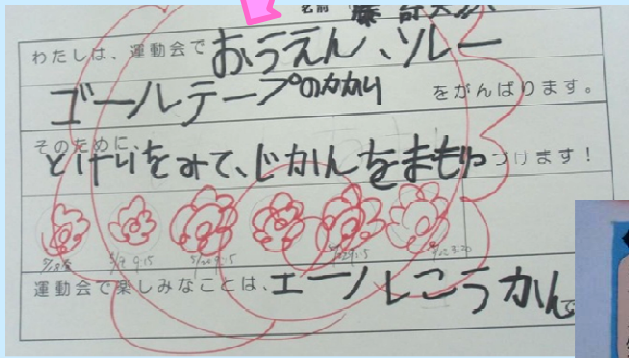 名前
わたしは、運動会で おうえん、ソレー
ゴールテープのかかり をがんばります。
そのために、
とけいをみて、じかんをまもり
づけます!
運動会で楽しみなことは、エールこうかんで